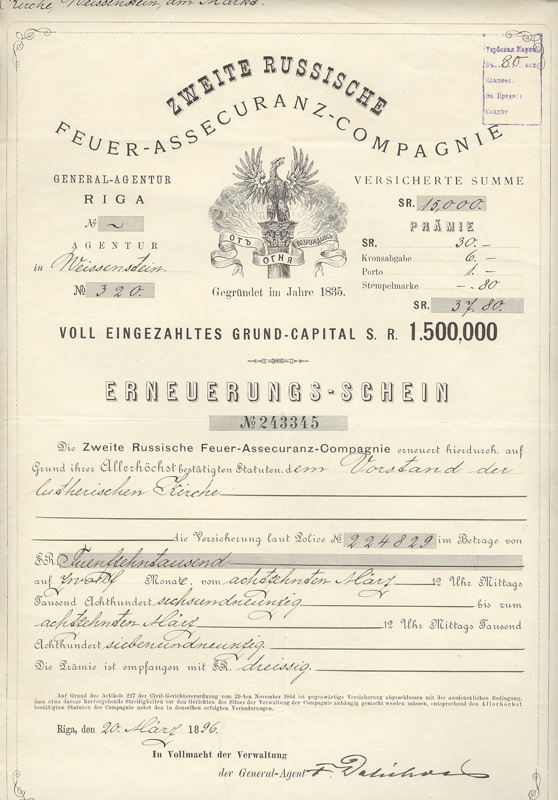 Kirche, Weissenstein, am Markt.
80
ZWEITE RUSSISCHE
FEUER-ASSECURANZ-COMPAGNIE
GENERAL-AGENTUR
RIGA
№ ~
AGENTUR
in Weissenstein.
№ 320.
ОТЪ ОГНЯ ВОЗРОЖДАЮСЬ
Gegründet im Jahre 1835.
VERSICHERTE SUMME
SR. 15,000.
PRÄMIE
SR. 30.–
Kronsabgabe 6.–
Porto 1.–
Stempelmarke –.80
SR. 37.80.
VOLL EINGEZAHLTES GRUND-CAPITAL S. R. 1.500,000
ERNEUERUNGS-SCHEIN
№ 243345
Die Zweite Russische Feuer-Assecuranz-Compagnie erneuert hierdurch, auf
Grund ihrer Allerhöchst bestätigten Statuten, dem Vorstand der
lutherischen Kirche
die Versicherung laut Police № 224829 im Betrage von
SR. Fuenfzehntausend
auf zwölf Monate, vom achtzehnten März 12 Uhr Mittags
Tausend Achthundert sechsundneunzig bis zum
achtzehnten März 12 Uhr Mittags Tausend
Achthundert siebenundneunzig.
Die Prämie ist empfangen mit SR. dreissig.
Auf Grund des Artikels 227 der Civil-Gerichtsverordnung vom 20-ten November 1864 ist gegenwärtige Versicherung abgeschlossen mit der ausdrücklichen Bedingung,
dass etwa daraus hervorgehende Streitigkeiten vor den Gerichten des Sitzes der Verwaltung der Compagnie anhängig gemacht werden müssen, entsprechend den Allerhöchst
bestätigten Statuten der Compagnie nebst den in denselben erfolgten Veränderungen.
Riga, den 20. März 1896.
In Vollmacht der Verwaltung
der General-Agent